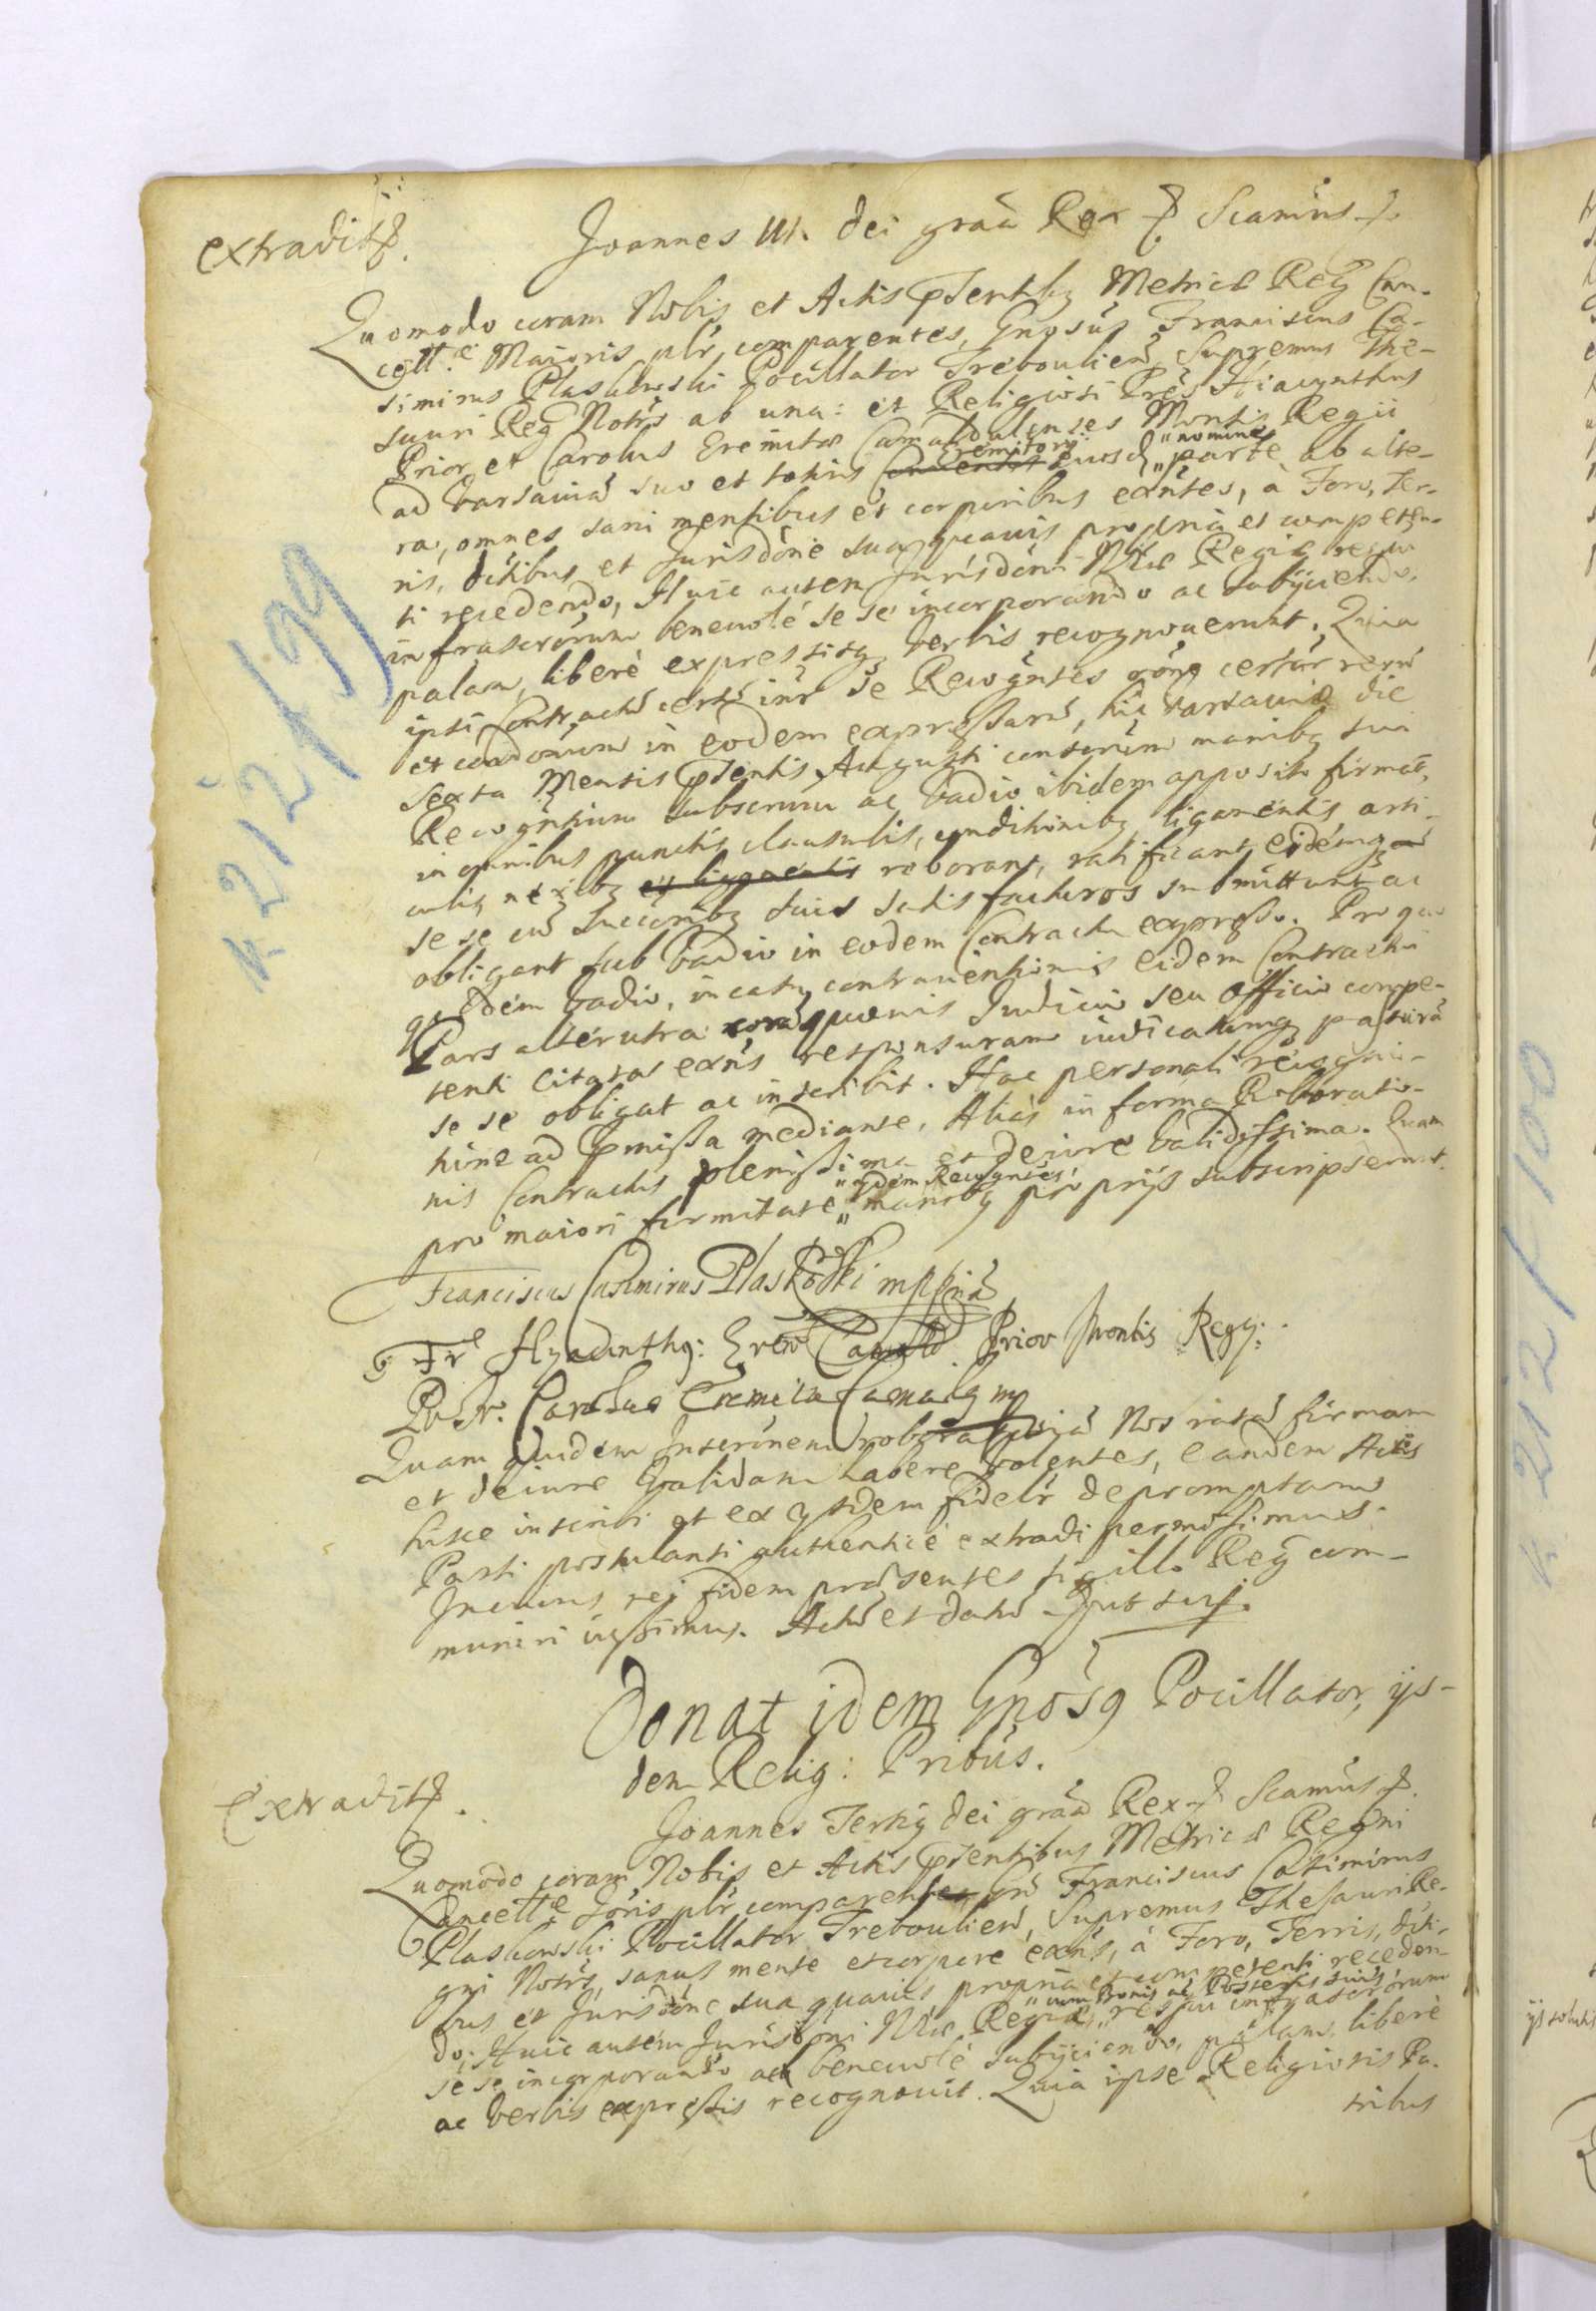 extradit.
Joannes III. Dei grãa Rex Scamus
Quomodo coram Nobis et Actis pñtibus Metricæ Reg Can-
cellæ Maioris plr comparentes, Gnosus Franciscus Ca-
simirus Plaskowski Pocillator Trebouliens Supremus The-
sauri Reg Notrs ab una: et Religiosi Pres Hiacynthus
Prior et Carolus Eremitæ Camaldulenses Montis Regii
ad Varsauia suo et totius Eremitory eiusd "nomine parte ab alte-
ra, omnes sani mentibus et corporibus exntes, a Foro, Ter-
ris, ditibus et Jurisdone sua quavis propria et competen-
ti recedendo, Huic autem Jurisdoni Nræ Regiæ respu
infrascrorum beneuole se se incorporando ac subijciendo,
palam, libere expressisq verbis recognouerunt. Quia
ipsi Contractu certu inr se Recogntes rone certar reru
et condonum in eodem expressaru, hic Varsauiæ die
sexta Mensis pntis Augusti conscrium manibq sui
Recogntium subscrum ac vadio ibidem apposito firmat,
in omnibus punctis clausulis, conditionibq ligamentis arti-
culis nexibq et ligamentis roborant, ratificant, eidemq
se se cu succoribq suis satis facturos submittunt ac
obligant sub vadio in eodem Contractu expresso. Pro quo
quidem vadio, in casu contrauentionis eidem Contractui
Pars alterutra cora quouis Iudicio seu Officio compe-
tenti citata exns responsuram iudicatumq passura
se se obligat ac inscribit. Hac personali recogni-
tione ad pmissa mediante, Alias in forma Roboratio-
nis Contractus plenissima et de iure validissima. Quam
pro maiori firmitate "ydem Recogntes manibq proprijs subscripserunt.
Franciscus Casimirus Plaskowski mppria
Fr Hyacinthq: Erem Camald Prior Montis Regy:
Carolus Eremita Camalq mp
Quam quidem Inscrinem roboratoria Nos rata firmam
et de iure validam habere volentes, eandem Actis
hisce inscribi et ex ysdem fideliter depromptam
Parti postulanti authentice extradi permisimus.
In cuius rei fidem præsentes sigillo Reg com-
muniri iussimus. Actu et datu ut sup.
Donat idem Gnosq Pocillator, ijs-
dem Relig: Pribus.
Extradit.
Joannes Tertiq Dei graa Rex Scamus
Quomodo coram Nobis et Actis pntibus Metricæ Regni
Cancellæ Joris plr comparens Gns Franciscus Casimirus
Plaskowski Pocillator Trebouliens, Supremus Thesauri Re-
gni Notrs, sanus mente et corpore exns, a Foro, Terris, diti-
bus et Jurisdone sua quauis propria et competenti receden-
do. Huic autem Jurisdoni Nræ Regiæ "cum Bonis ac Posteris suis respu infrascrorum
se se incorporando ac beneuole subijciendo, palam, libere
ac verbis expressis recognouit. Quia ipse Religiosis Pa-
tribus